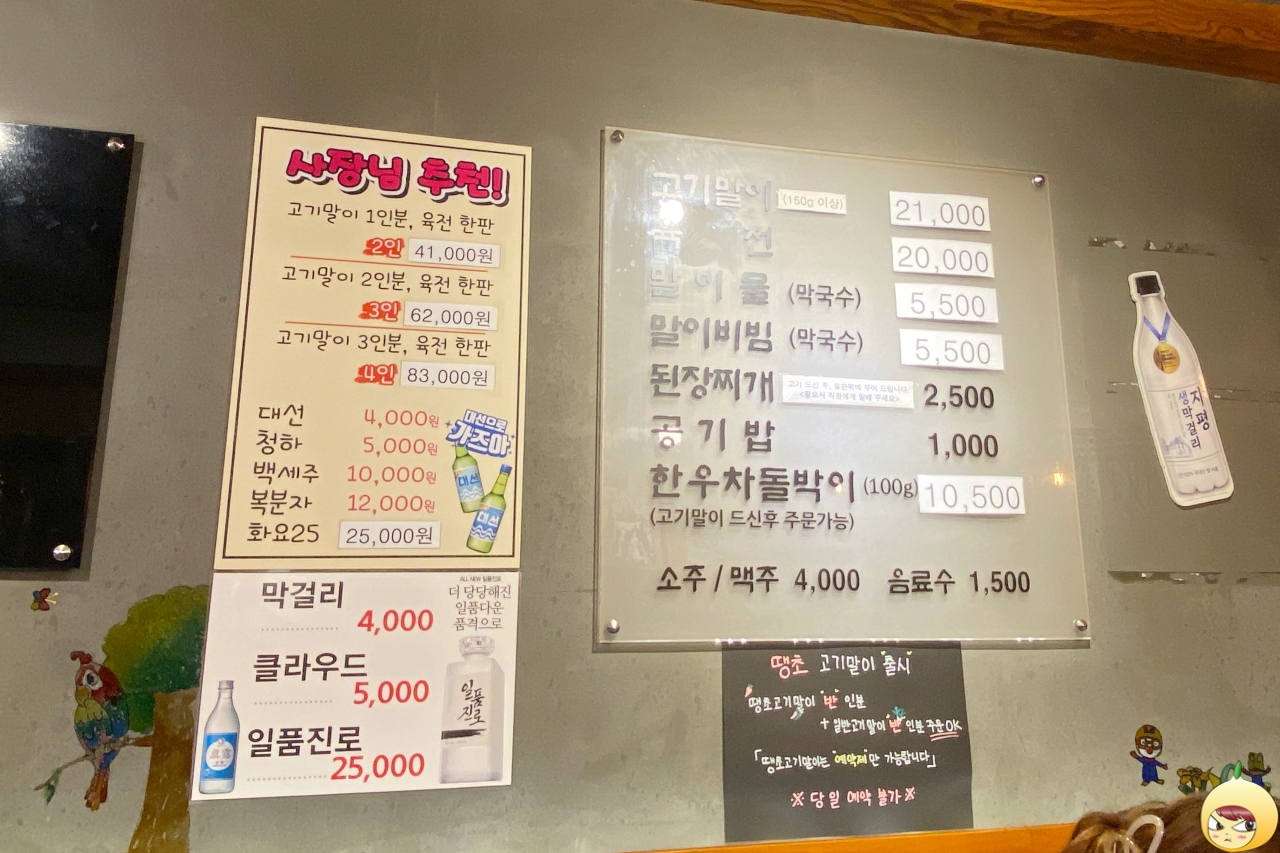 사장님 추천!
고기말이 1인분, 육전 한판
2인 41,000원
고기말이 2인분, 육전 한판
3인 62,000원
고기말이 3인분, 육전 한판
4인 83,000원
대선 4,000원
청하 5,000원
백세주 10,000원
복분자 12,000원
화요25 25,000원
대선으로
가즈아
대선
대선
막걸리
4,000
클라우드
5,000
일품진로
25,000
ALL NEW 일품진로
더 당당해진
일품다운
품격으로
일품
진로
眞露
고기말이 (150g 이상) 21,000
육전 20,000
말이물 (막국수) 5,500
말이비빔 (막국수) 5,500
된장찌개 고기 드신 후, 불판위에 부어 드립니다 2,500
<필요시 직원에게 말해 주세요>
공기밥 1,000
한우차돌박이 (100g) 10,500
(고기말이 드신후 주문가능)
소주 / 맥주 4,000 음료수 1,500
땡초 고기말이 출시
땡초고기말이 "반" 인분
+ 일반고기말이 "반" 인분 주문OK
「땡초고기말이는 "예약제"만 가능합니다」
※ 당일 예약 불가 ※
지평
생막걸리